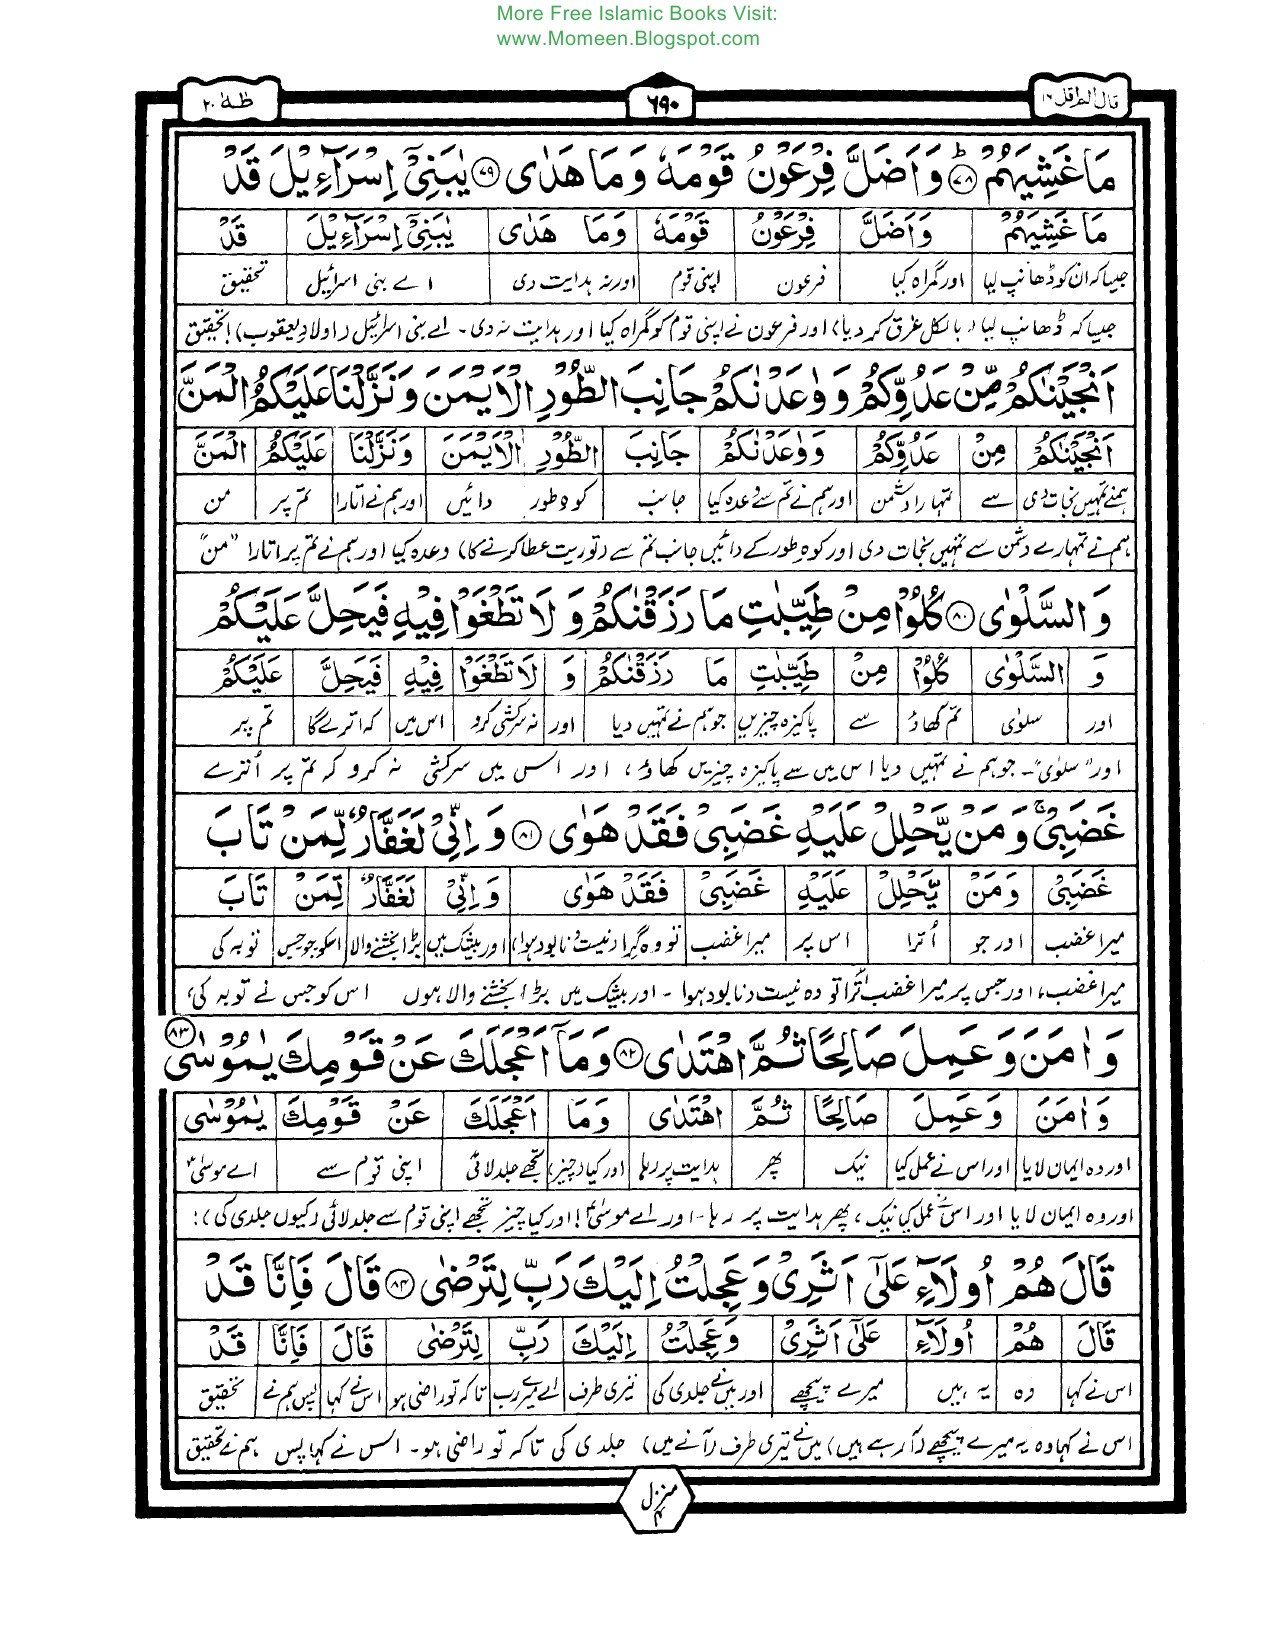 More Free Islamic Books Visit:
www.Momeen.Blogspot.com
قال الم اقل ١٦
٦٩٠
طٰهٰ ٢٠
مَا غَشِيَهُمْ ؕ ﴿٧٨﴾ وَاَضَلَّ فِرْعَوْنُ قَوْمَهٗ وَمَا هَدٰى ﴿٧٩﴾ يٰبَنِيْٓ اِسْرَآءِيْلَ قَدْ
مَا غَشِيَهُمْ وَاَضَلَّ فِرْعَوْنُ قَوْمَهٗ وَمَا هَدٰى يٰبَنِيْٓ اِسْرَآءِيْلَ قَدْ
جیسا کہ ان کو ڈھانپ لیا اور گمراہ کیا فرعون اپنی قوم اور نہ ہدایت دی اے بنی اسرائیل تحقیق
جیسا کہ ڈھانپ لیا (بالکل غرق کر دیا) اور فرعون نے اپنی قوم کو گمراہ کیا اور ہدایت نہ دی۔ اے بنی اسرائیل (اولادِ یعقوب)! تحقیق
اَنْجَيْنٰكُمْ مِّنْ عَدُوِّكُمْ وَوٰعَدْنٰكُمْ جَانِبَ الطُّوْرِ الْاَيْمَنَ وَنَزَّلْنَا عَلَيْكُمُ الْمَنَّ
اَنْجَيْنٰكُمْ مِنْ عَدُوِّكُمْ وَوٰعَدْنٰكُمْ جَانِبَ الطُّوْرِ الْاَيْمَنَ وَنَزَّلْنَا عَلَيْكُمُ الْمَنَّ
ہمنے تمہیں نجات دی سے تمہارا دشمن اور ہم نے تم سے وعدہ کیا جانب کوہ طور دائیں اور ہم نے اتارا تم پر من
ہم نے تمہارے دشمن سے تمہیں نجات دی اور کوہِ طور کے دائیں جانب تم سے (توریت عطا کرنے کا) وعدہ کیا اور ہم نے تم پر اتارا "من"
وَ السَّلْوٰى ﴿٨٠﴾ كُلُوْا مِنْ طَيِّبٰتِ مَا رَزَقْنٰكُمْ وَ لَا تَطْغَوْا فِيْهِ فَيَحِلَّ عَلَيْكُمْ
وَ السَّلْوٰى كُلُوْا مِنْ طَيِّبٰتِ مَا رَزَقْنٰكُمْ وَ لَا تَطْغَوْا فِيْهِ فَيَحِلَّ عَلَيْكُمْ
اور سلوٰی تم کھاؤ سے پاکیزہ چیزیں جو ہم نے تمہیں دیا اور نہ سرکشی کرو اس میں کہ اترے گا تم پر
اور "سلوٰی"۔ جو ہم نے تمہیں دیا اس میں سے پاکیزہ چیزیں کھاؤ، اور اس میں سرکشی نہ کرو کہ تم پر اُترے
غَضَبِيْ ۚ وَمَنْ يَّحْلِلْ عَلَيْهِ غَضَبِيْ فَقَدْ هَوٰى ﴿٨١﴾ وَ اِنِّيْ لَغَفَّارٌ لِّمَنْ تَابَ
غَضَبِيْ وَمَنْ يَّحْلِلْ عَلَيْهِ غَضَبِيْ فَقَدْ هَوٰى وَ اِنِّيْ لَغَفَّارٌ لِّمَنْ تَابَ
میرا غضب اور جو اُترا اس پر میرا غضب تو وہ گرا (نیست و نابود ہوا) اور بیشک میں بڑا بخشنے والا اسکو جو جس توبہ کی
میرا غضب، اور جس پر میرا غضب اُترا تو وہ نیست و نابود ہوا۔ اور بیشک میں بڑا بخشنے والا ہوں اس کو جس نے توبہ کی،
وَ اٰمَنَ وَ عَمِلَ صَالِحًا ثُمَّ اهْتَدٰى ﴿٨٢﴾ وَمَآ اَعْجَلَكَ عَنْ قَوْمِكَ يٰمُوْسٰى ﴿٨٣﴾
وَ اٰمَنَ وَ عَمِلَ صَالِحًا ثُمَّ اهْتَدٰى وَمَا اَعْجَلَكَ عَنْ قَوْمِكَ يٰمُوْسٰى
اور وہ ایمان لایا اور اس نے عمل کیا نیک پھر ہدایت پر رہا اور کیا (چیز) تجھے جلد لائی اپنی قوم سے اے موسیٰؑ
اور وہ ایمان لایا اور اس نے عمل کیا نیک، پھر ہدایت پر رہا۔ اور اے موسیٰؑ! اور کیا چیز تجھے اپنی قوم سے جلد لائی (کیوں جلدی کی)؛
قَالَ هُمْ اُولَآءِ عَلٰٓى اَثَرِيْ وَ عَجِلْتُ اِلَيْكَ رَبِّ لِتَرْضٰى ﴿٨٤﴾ قَالَ فَاِنَّا قَدْ
قَالَ هُمْ اُولَآءِ عَلٰٓى اَثَرِيْ وَ عَجِلْتُ اِلَيْكَ رَبِّ لِتَرْضٰى قَالَ فَاِنَّا قَدْ
اس نے کہا وہ یہ ہیں میرے پیچھے اور میں نے جلدی کی تیری طرف اے میرے رب تاکہ تو راضی ہو اس نے کہا پس ہم نے تحقیق
اس نے کہا وہ یہ میرے پیچھے (آ رہے ہیں) میں نے تیری طرف (آنے میں) جلدی کی تاکہ تو راضی ہو۔ اس نے کہا پس ہم نے تحقیق
منزل ۴